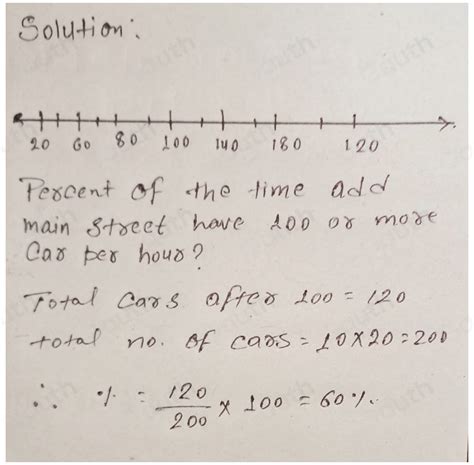 Solution:
20 60 80 100 140 180 120
Percent of the time add
main street have 100 or more
Car per hour?
Total Cars after 100 = 120
total no. of cars = 10×20=200
∴ % = 120/200 × 100 = 60%.